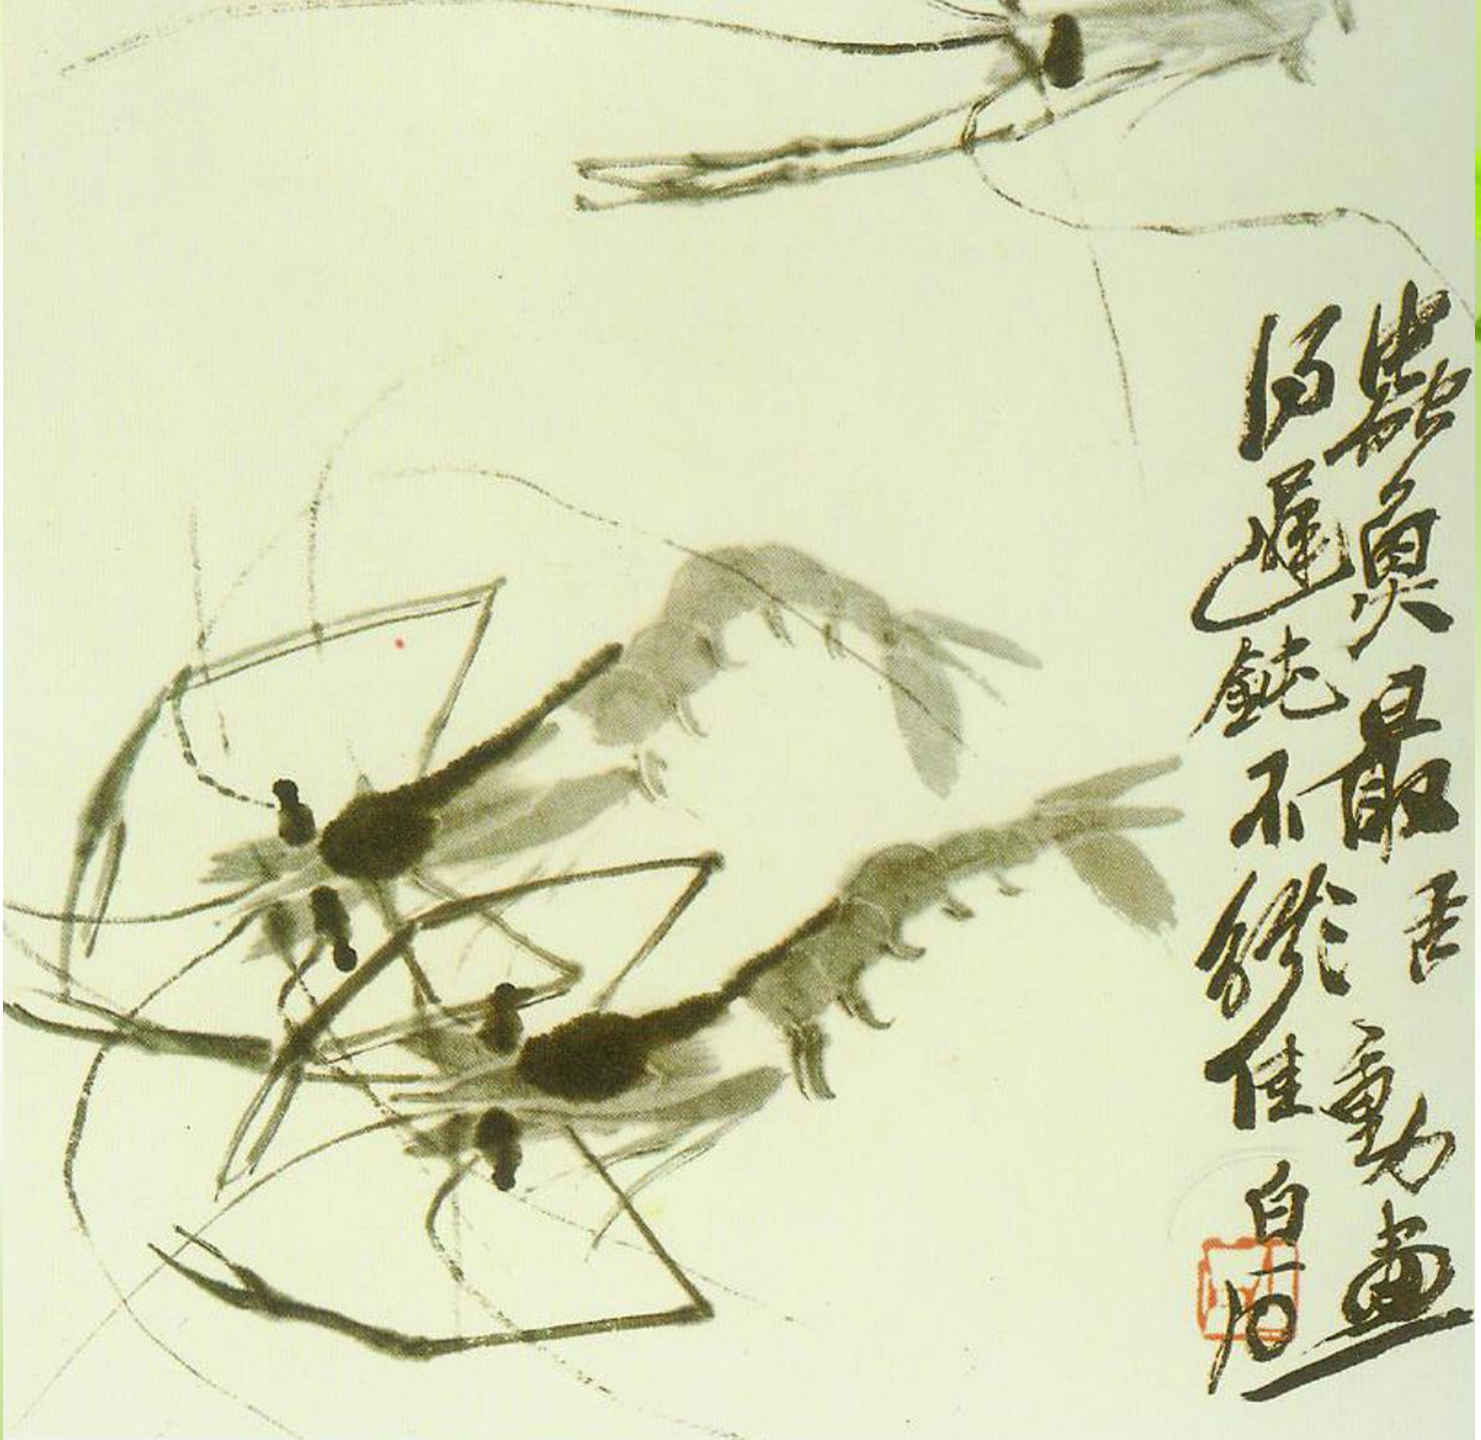 蟲魚最活動畫
得遲鈍不能佳 白石